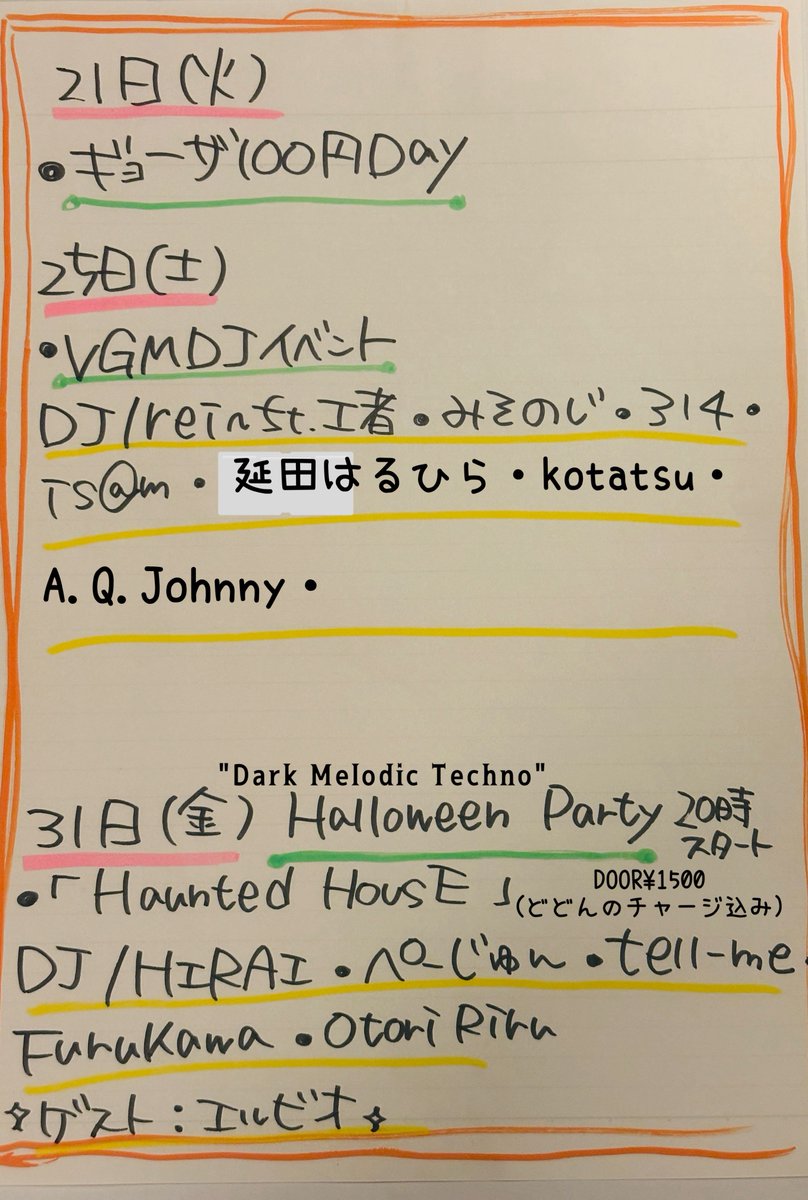 21日(火)
•ギョーザ100円Day
25日(土)
•VGMDJイベント
DJ/reinSt.工者•みそのじ•314•
TS@m•延田はるひら•kotatsu•
A.Q.Johnny•
"Dark Melodic Techno"
31日(金) Halloween Party 20時スタート
•「Haunted HousE」DOOR¥1500
(どどんのチャージ込み)
DJ/HIRAI•ぺーじゅん•tell-me•
Furukawa•Otori Riru
✧ゲスト:エルビオ✧